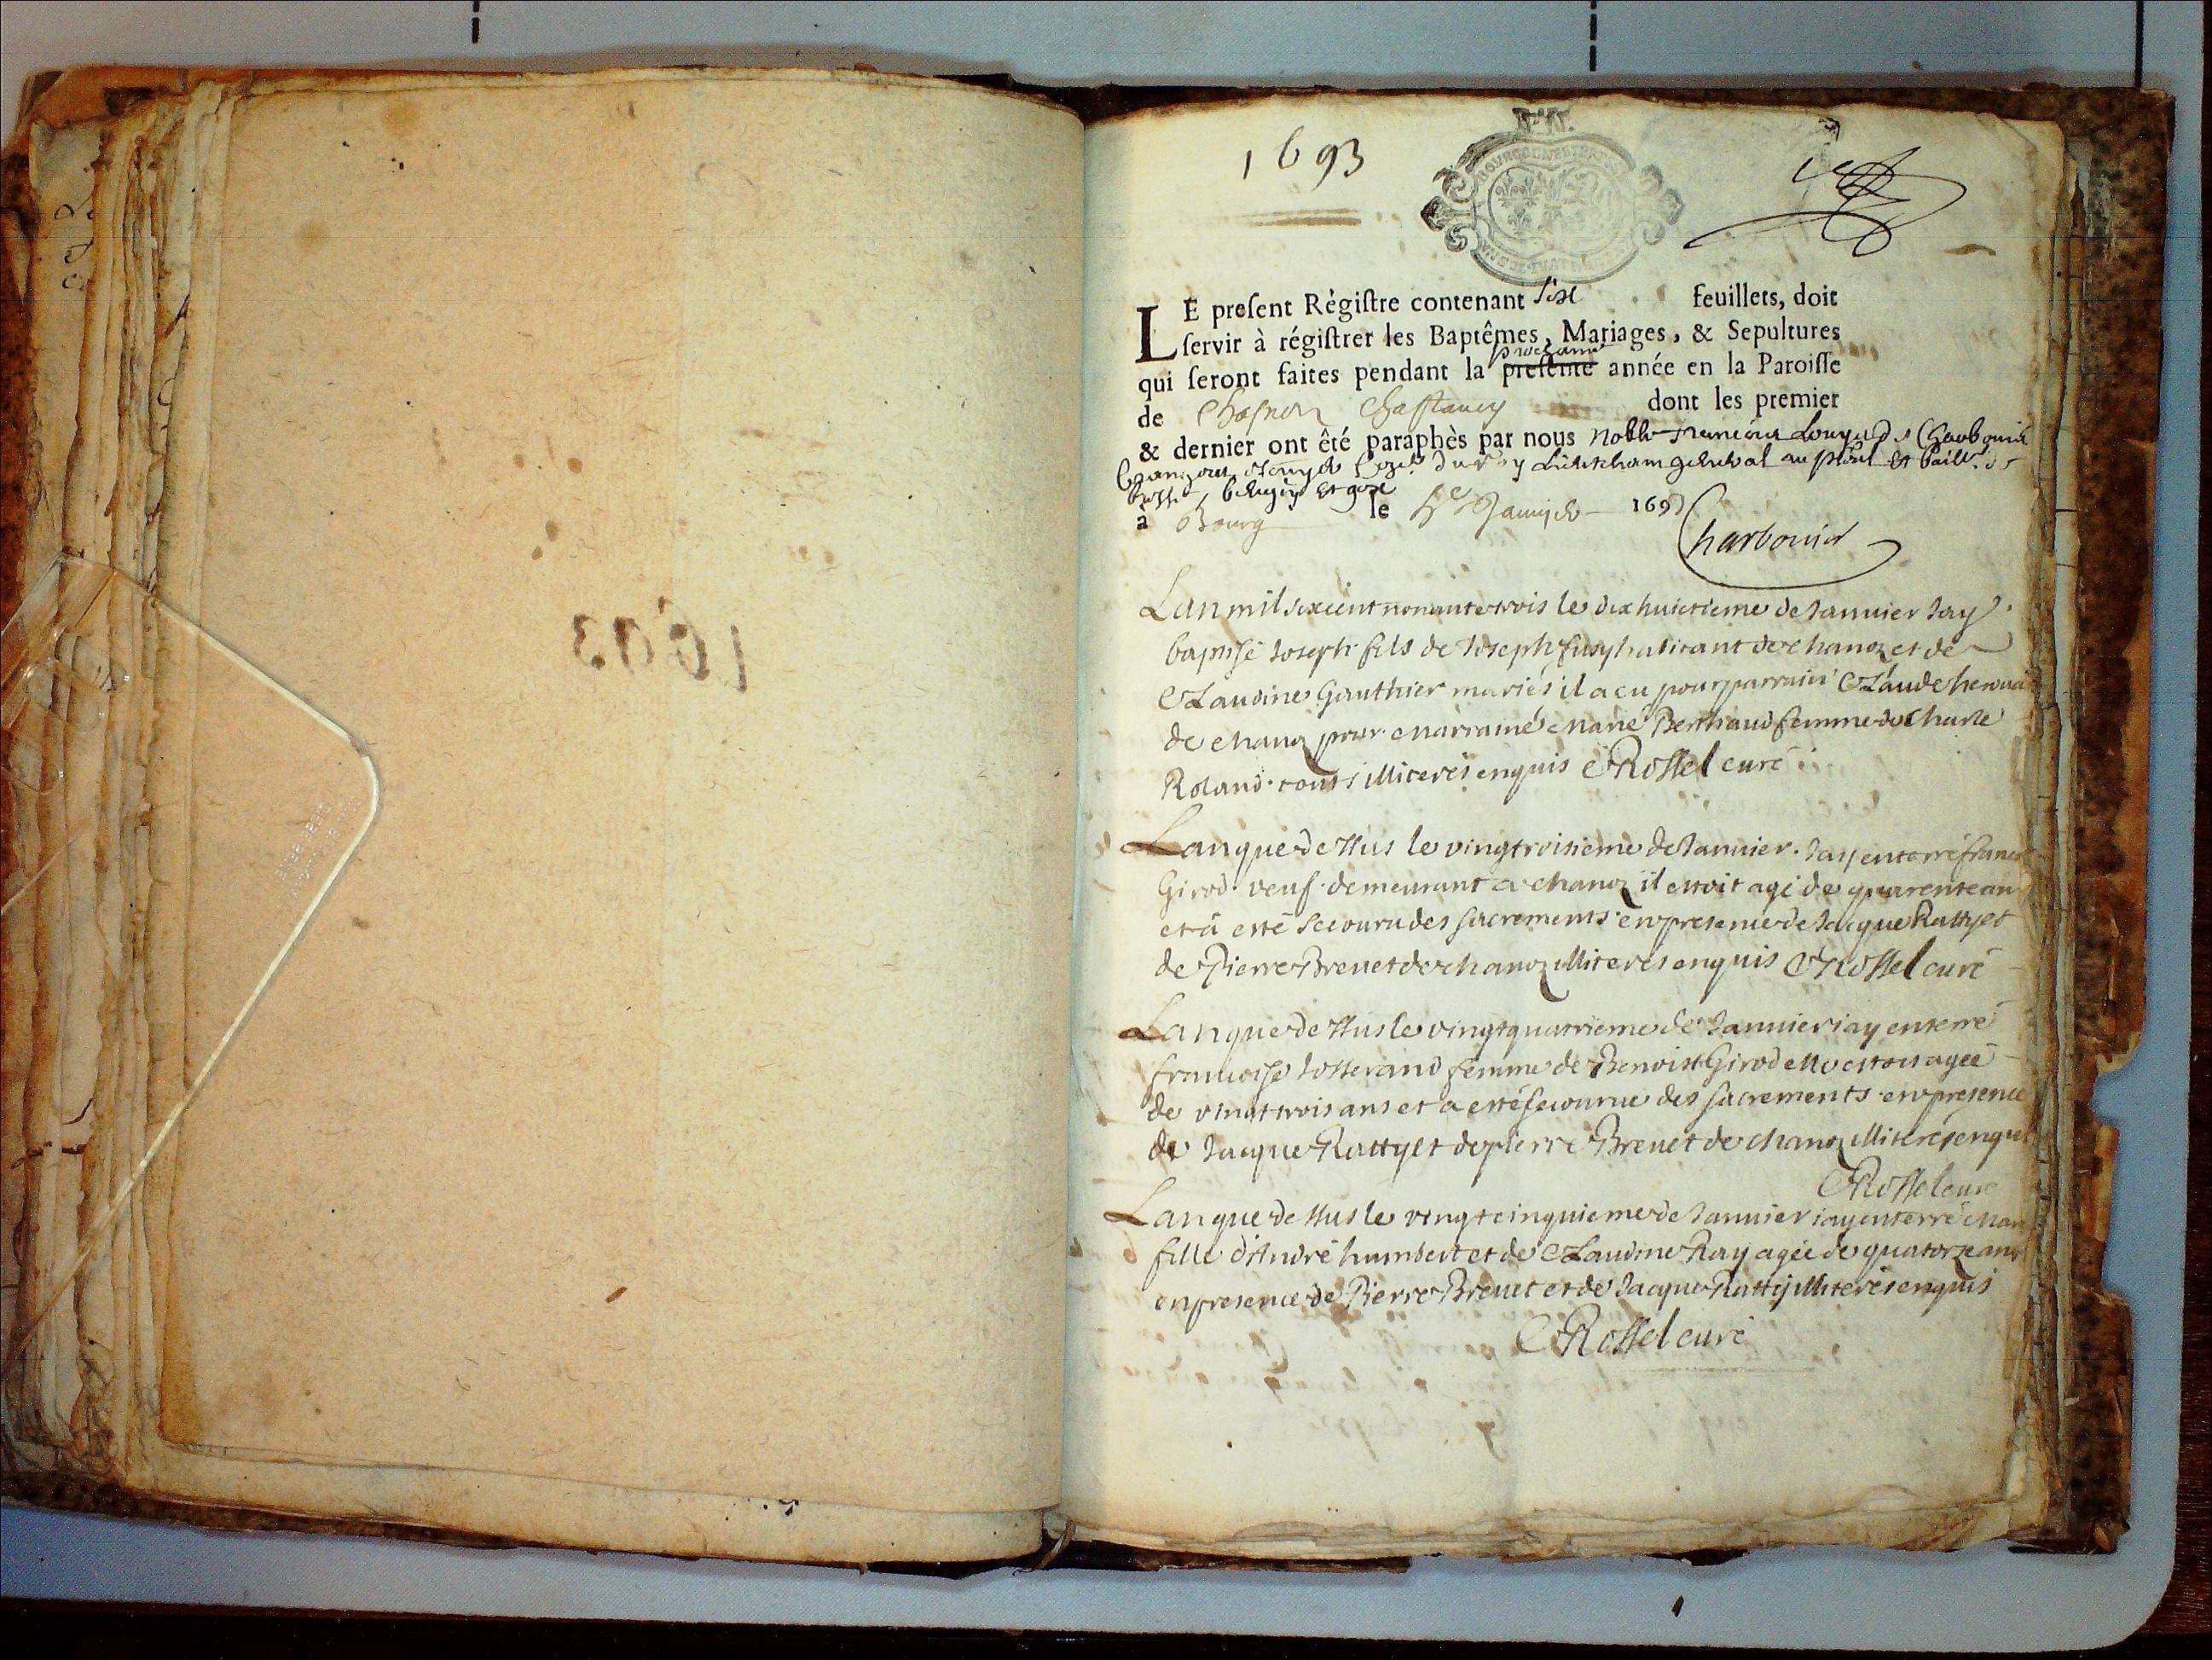 1693
LE present Régistre contenant six feuillets, doit
servir à régistrer les Baptêmes, Mariages, & Sepultures
prochaine
qui seront faites pendant la presente année en la Paroisse
de Chasnoz Chastanay dont les premier
& dernier ont êté paraphès par nous noble
general
bresse, beugey et gex
à Bourg le Janvier 1693
Charbonier
Lan mil sixcent nonante trois le dix huictieme de Janvier Jay
baptisé Joseph fils de Joseph habitant de chanoz et de
Claudine Gauthier mariés il a eu pour parrain Claude
de chanoz pour marraine Marie Berthaud femme de Charle
Roland tous illiterés enquis CRossel curé
Lan que dessus le vingtroisieme de Janvier Jay enterré
Girod veuf demeurant a chanoz il estoit agé de quarente an
et a esté secouru des sacrements en presence de Jacque Ratty et
de Pierre Brevet de chanoz illiterés enquis CRossel curé
Lan que dessus le vingtquatrieme de Janvier iay enterré
francoise Josserand femme de Benoist Girod elle estoit agée
de vingttrois ans et a esté secourue des sacrements en presence
de Jacque Ratty et de pierre Brevet de chanoz illiterés enquis
CRossel curé
Lan que dessus le vingtcinquieme de Janvier iay enterré
fille d'André humbert et de Claudine Ray agée de quatorze ans
en presence de Pierre Brevet et de Jacque Ratty illiterés enquis
CRossel curé